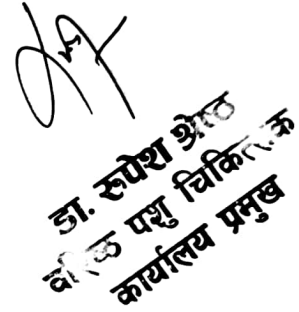 डा. रुपेश श्रेष्ठ
वरिष्ठ पशु चिकित्सक
कार्यालय प्रमुख